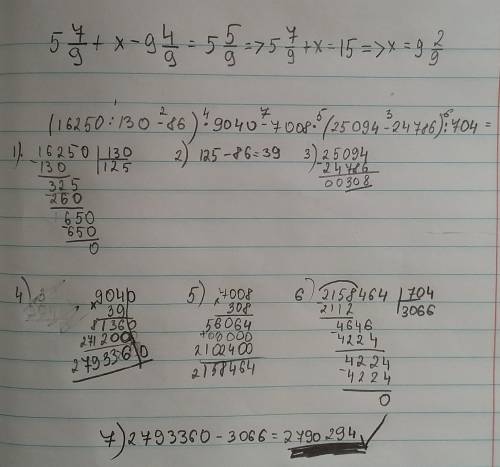 5 7/9 + x - 9 4/9 = 5 5/9 => 5 7/9 + x = 15 => x = 9 2/9
(16250 : 130 - 86) · 9040 - 7008 · (25094 - 24786) : 704 =
1) 16250 | 130
- 130 125
325
- 260
650
- 650
0
2) 125 - 86 = 39
3) 25094
- 24786
00308
4) 9040
× 39
81360
271200
2793360
5) 7008
× 308
56064
+ 00000
2102400
2158464
6) 2158464 | 704
2112 3066
4646
- 4224
4224
- 4224
0
7) 2793360 - 3066 = 2790294